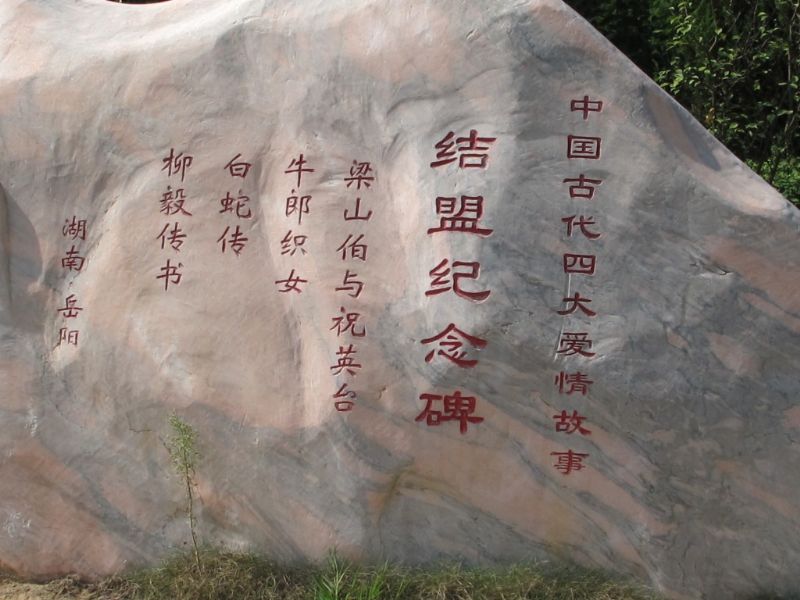 中国古代四大爱情故事
结盟纪念碑
梁山伯与祝英台
牛郎织女
白蛇传
柳毅传书
湖南·岳阳